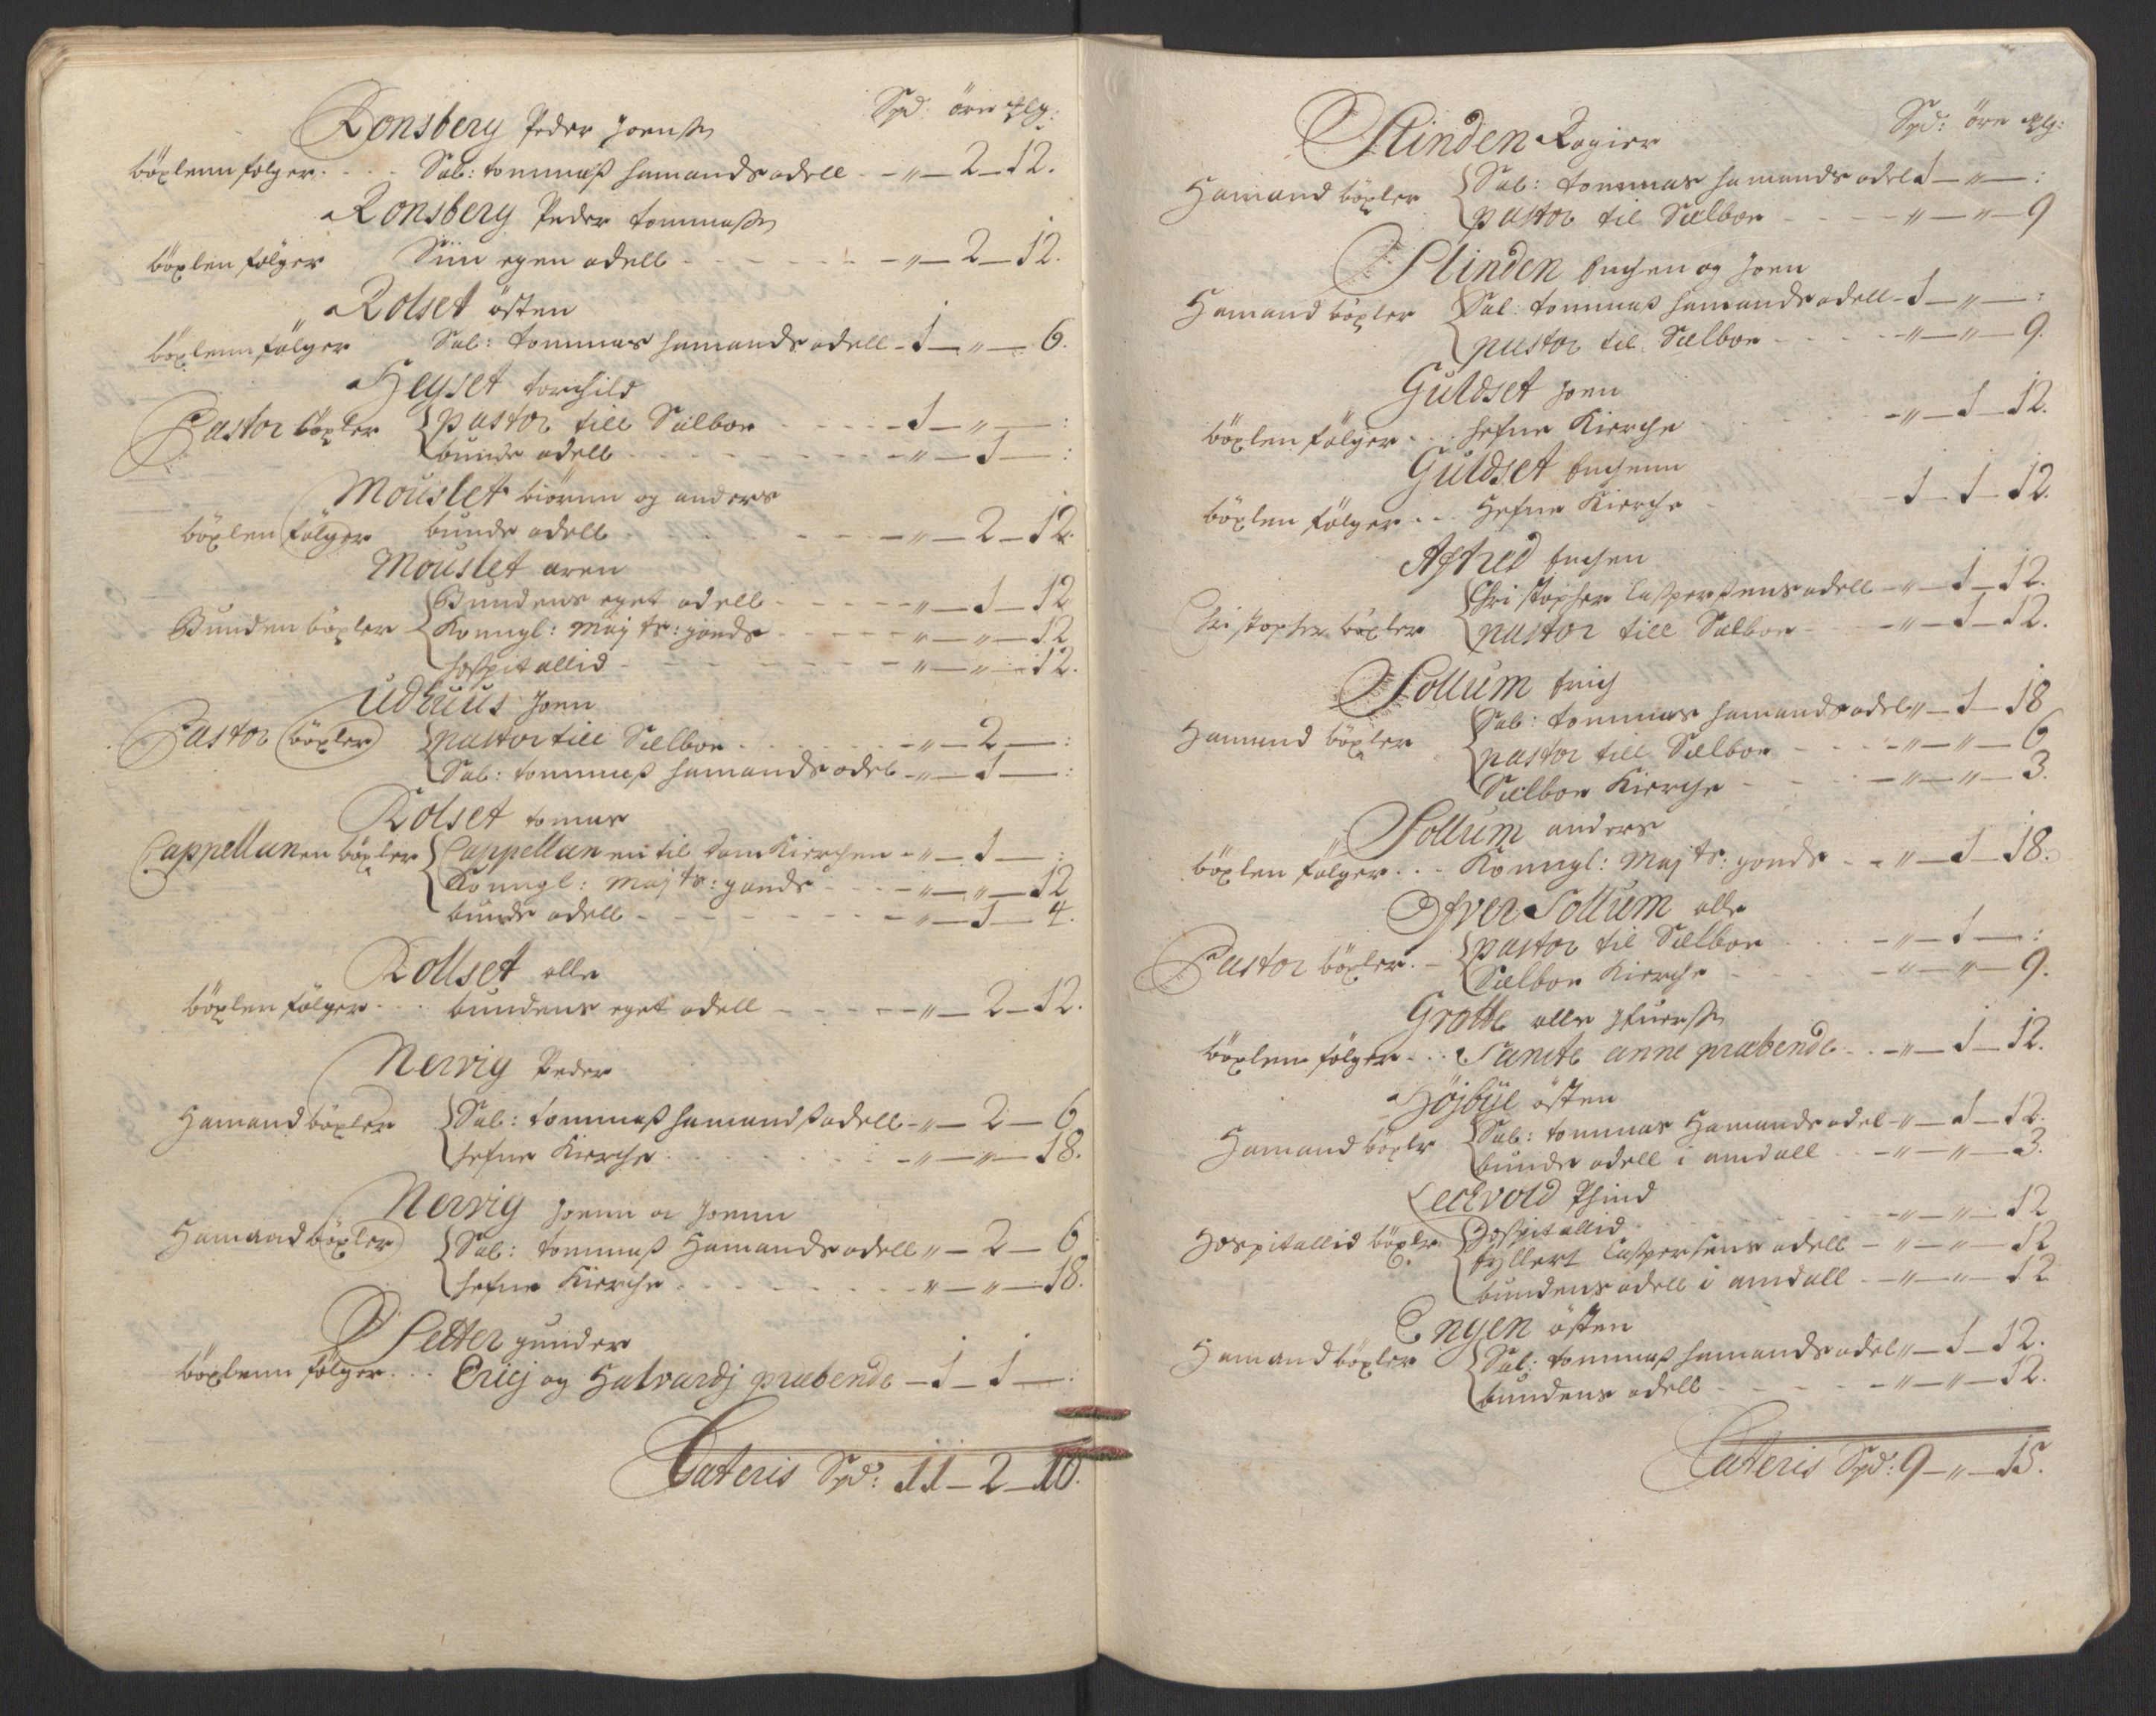 Spd: öre mlg:
Ronsberg Peder Joensen
böxlenn følger. . . . Sal: tommaß hamands odell - „ — 2 — 12.
Ronsberg Peder tommaßen
böxlen følger Siin egen odell - - - - - - „ — 2 — 12.
Rolset östen
böxlenn følger Sal: tommas hamands odell - 1 — „ — 6.
Heyset torchild
Pastor böxler { pastor till Sælboe - - - - - 1 — „ — :
bunde odell - - - - - - - - „ — 1 — :
Mouslet biörnn og anders
böxlen følger bunde odell - - - - „ — 2 — 12.
Mouslet aren
Bunden böxler { Bundens eget odell - - - - - „ — 1 — 12
Konngl: Maj ts: gonds - - - - „ — „ — 12
hospitallid - - - - - - - „ — „ — 12.
Udhuus Joen
Pastor böxler { pastor till Sælboe - - - - - „ — 2 — :
Sal: tommaß hamands odel - „ — 1 — :
Rolset tomas
Cappellanen böxler { Cappellanen til domkierchen - „ — 1 — :
Konngl: Maj ts: gonds - - - - „ — „ — 12
bunde odell - - - - - - - „ — 1 — 4.
Rollset olle
böxlen følger - . . . bundens eget odell - - - - - „ — 2 — 12.
Nervig Peder
Hamand böxler { Sal: tommaß hamandß odell - „ — 2 — 6
hefne Kierche - - - - - - „ — „ — 18.
Nervig Joenn oc Joenn
Hamand böxler { Sal: tommaß Hamands odell „ — 2 — 6
hefne Kierche - - - - - - „ — „ — 18.
Setter gunder
böxlenn følger. . . Ericj og Halvardj præbende — 1 — 1 — :
Lateris Spd: 11 — 2 — 10.
Spd: öre mlg:
Slinden Rogier
Hamand böxler { Sal: tommas hamands odel 1 — „ — :
pastor til Sælboe - - - - „ — „ — 9
Slinden Enchen og Joen
Hamand böxler { Sal: tommaß hamands odell - 1 — „ — :
pastor til Sælboe - - - - „ — „ — 9.
Guldset Joen
böxlen følger - . . . hefne Kierche - „ — 1 — 12.
Guldset Enchenn
böxlen følger . . . Hefne Kierche - 1 — 1 — 12.
Enchen
Christopher böxler { Christopher Caspersens odell - „ — 1 — 12.
pastor till Sælboe - - „ — 1 — 12.
Sollum Erich
Hamand böxler { Sal: tommas hamands odel „ — 1 — 18
pastor till Sælboe - - - - „ — „ — 6
Sælboe Kierche - - - - „ — „ — 3.
Sollum anders
böxlen følger . . . Konngl: Maj ts: gonds - - „ — 1 — 18.
Ofver Sollum olle
Pastor böxler. - { pastor til Sælboe - - - „ — 1 — :
Sælboe Kierche - - - - „ — „ — 9.
Grøtte olle
böxlen følger. . . Sancte anne præbende - - „ — 1 — 12.
Höjbye östen
Hamand böxler { Sal: tommas Hamands odel - „ — 1 — 12.
bunde odell i amdall - - „ — „ — 3.
Leervold
Hospitallid böxler { Hospitallid - - - - „ — „ — 12
Eyllert Caspersens odell - „ — „ — 12
bundens odell i amdall - „ — „ — 12
Engen östen
Hamand böxler { Sal: tommaß hamands odel „ — 1 — 12.
bundens odell - - - - „ — „ — 12.
Lateris Spd: 9 — „ — 15.